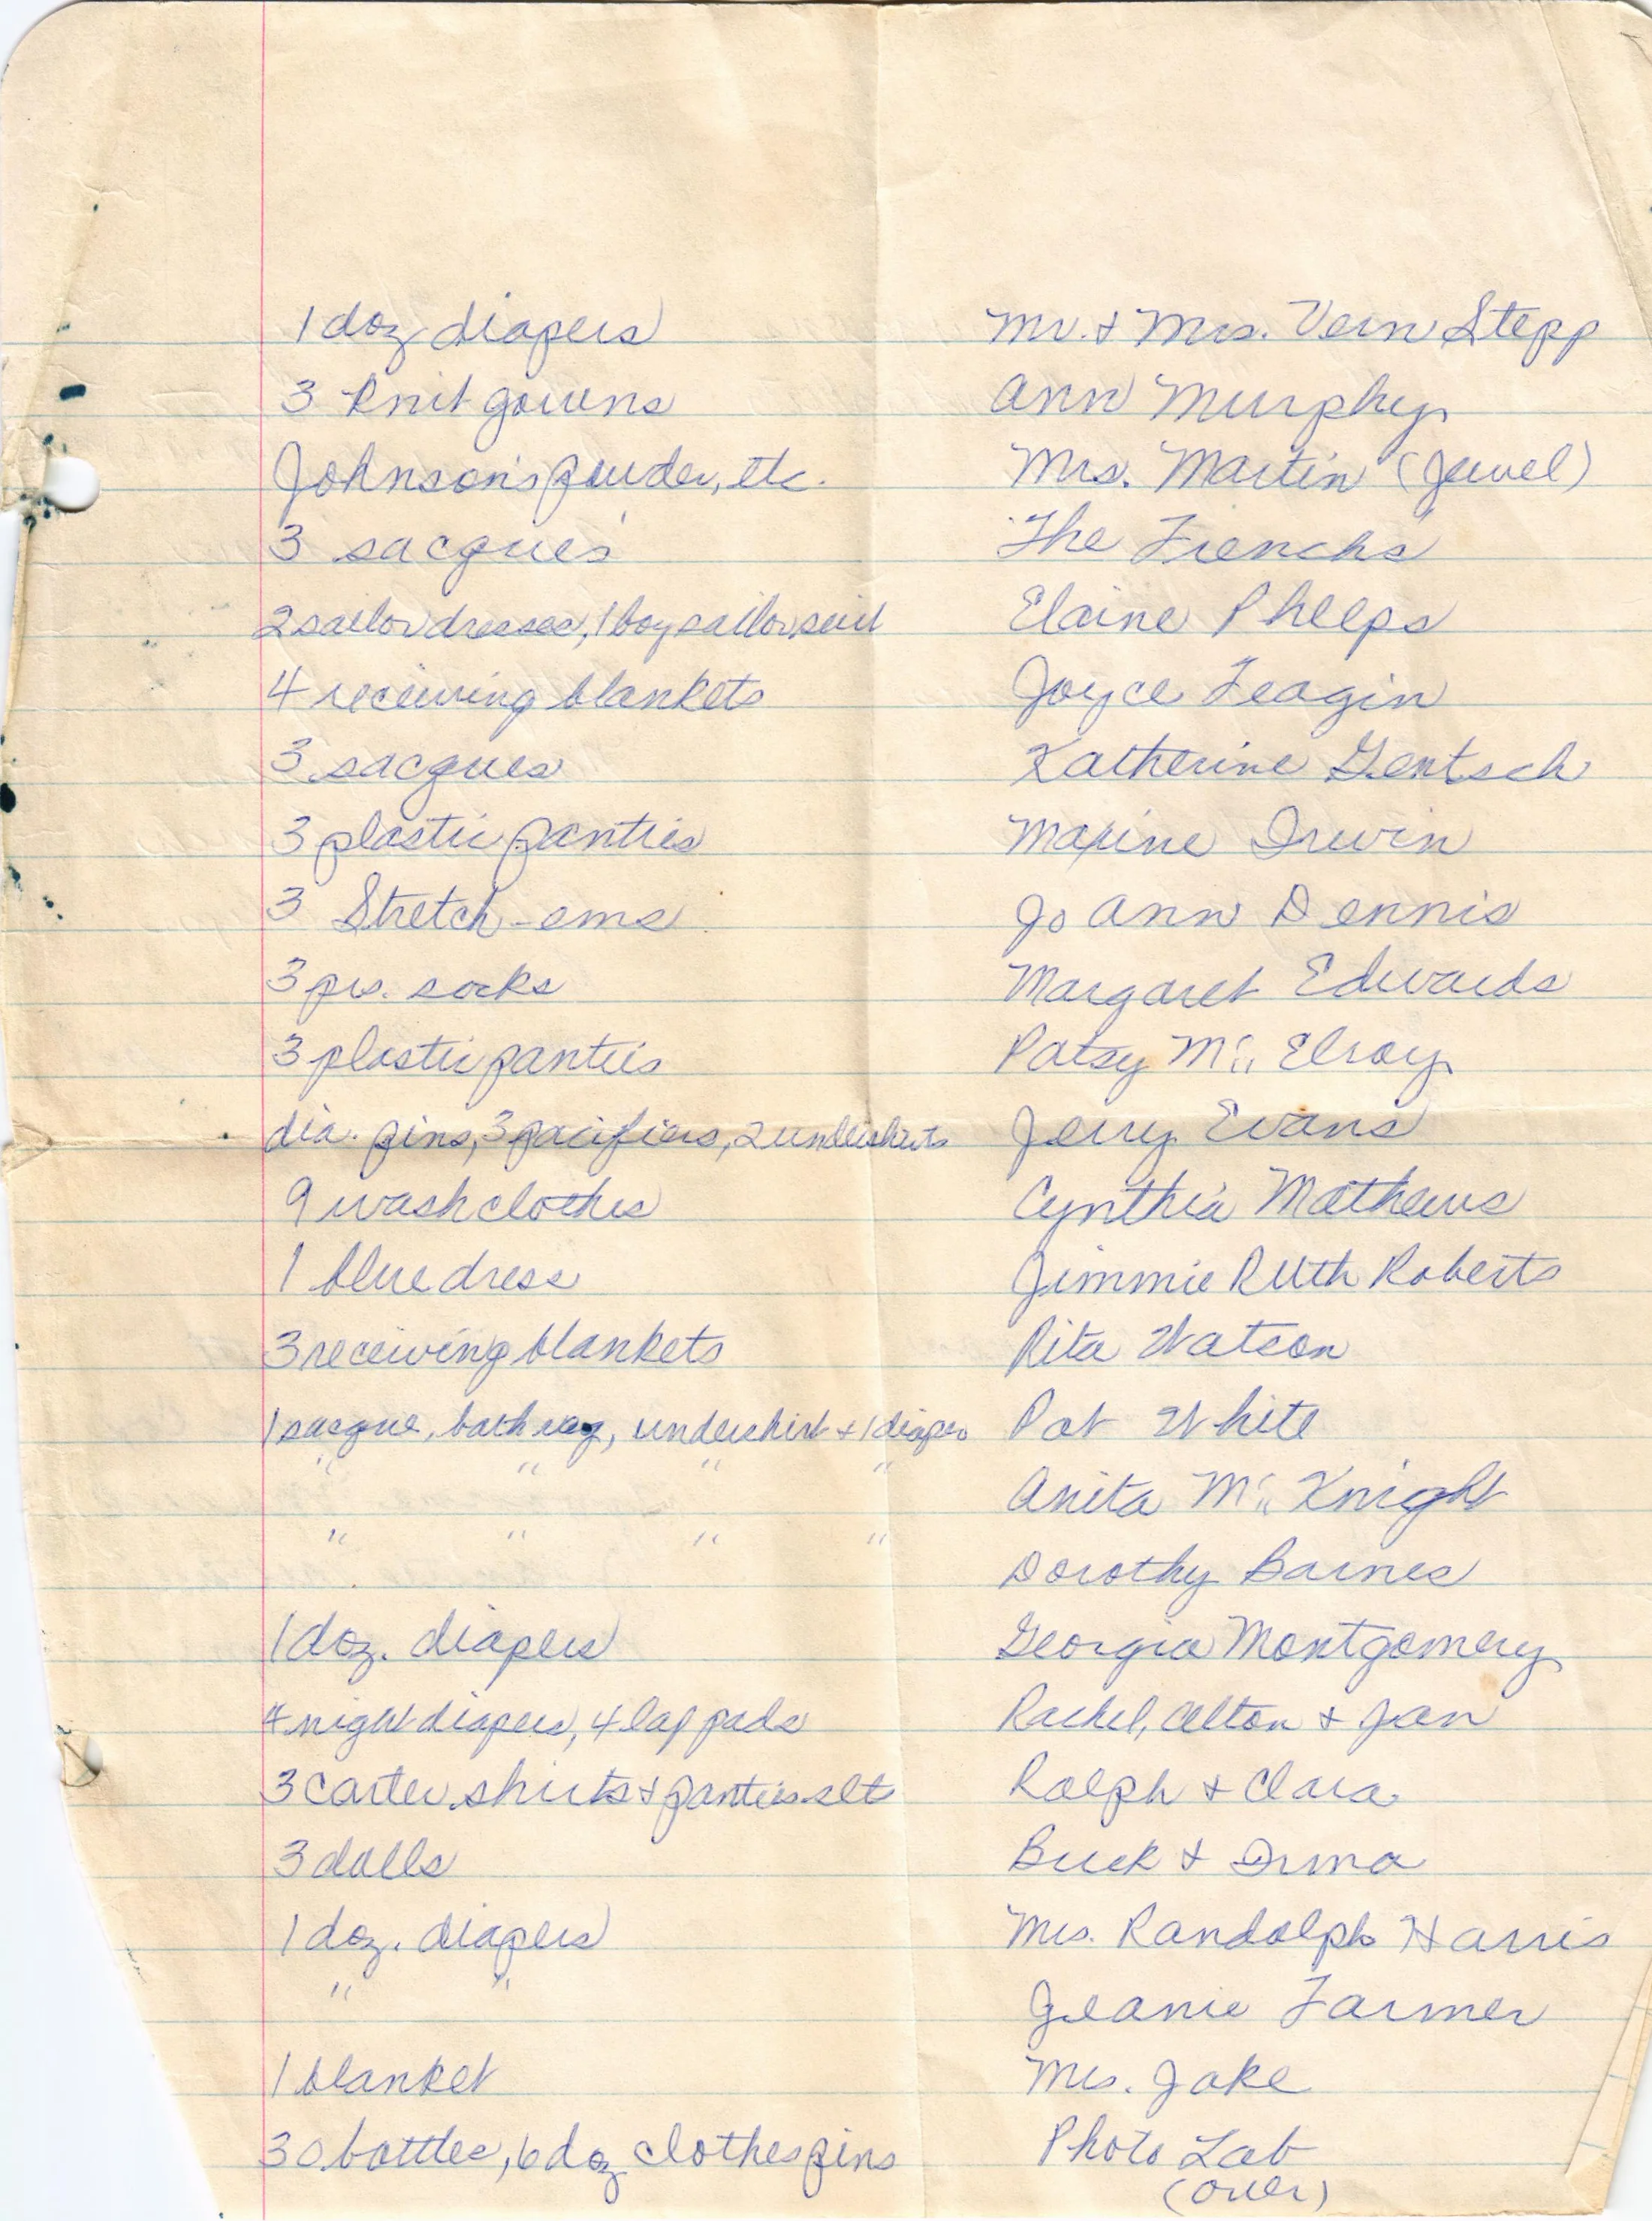 1 doz diapers Mr. & Mrs. Vern Stepp
3 knit gowns Ann Murphy
Johnson's powder, etc. Mrs. Martin (Jewel)
3 sacques The Frenchs
2 sailor dresses, 1 boy sailor suit Elaine Phelps
4 receiving blankets Joyce Feagin
3 sacques Katherine Gentsch
3 plastic panties Maxine Irwin
3 Stretch-ems Jo Ann Dennis
3 prs. socks Margaret Edwards
3 plastic panties Patsy Mc Elroy
dia. pins, 3 pacifiers, 2 undershirts Jerry Evans
9 wash clothes Cynthia Mathews
1 blue dress Jimmie Ruth Roberts
3 receiving blankets Rita Watson
1 sacque, bath rag, undershirt & 1 diaper Pat White
" " " " Anita Mc Knight
" " " " Dorothy Barnes
1 doz. diapers Georgia Montgomery
4 night diapers, 4 lap pads Rachel, Alton & Jan
3 Carter shirts & panties sets Ralph & Clara
3 dolls Buck & Irma
1 doz. diapers Mrs. Randolph Harris
" " Jeanie Farmer
1 blanket Mrs. Jake
30 bottles, 6 doz clothespins Photo Lab
(over)